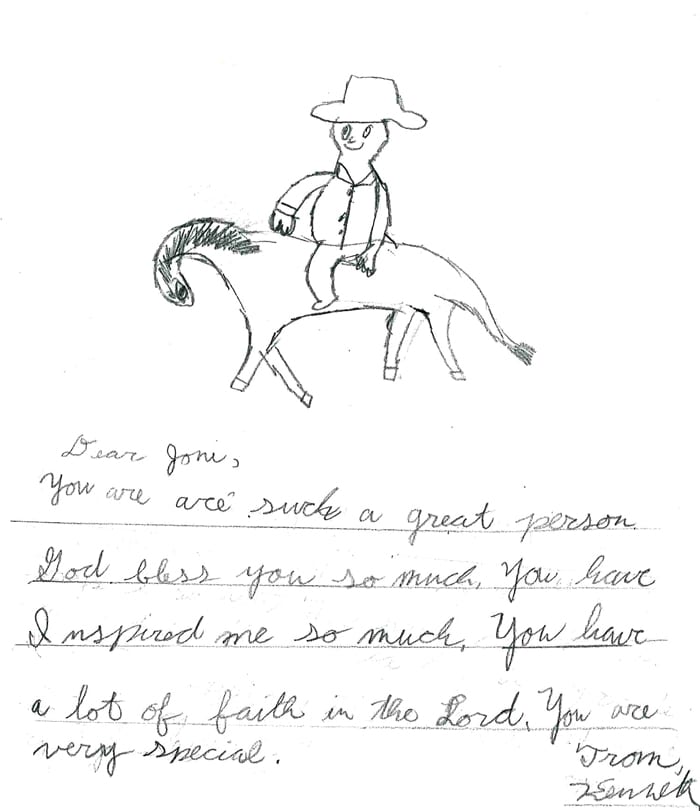 Dear Joni,
You are are such a great person.
God bless you so much. You have
Inspired me so much. You have
a lot of faith in the Lord. You are
very special.
From,
Kenneth